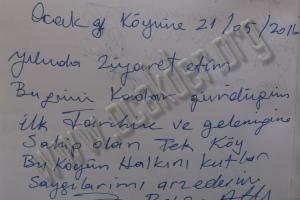 Ocak Köyüne 21/05/2016
yılında Ziyaret ettim
Bugüne Kadar gördüğüm
ilk Tarihine ve geleneğine
Sahip olan Tek Köy
Bu Köyün Halkını kutlar
Saygılarımı arzederim